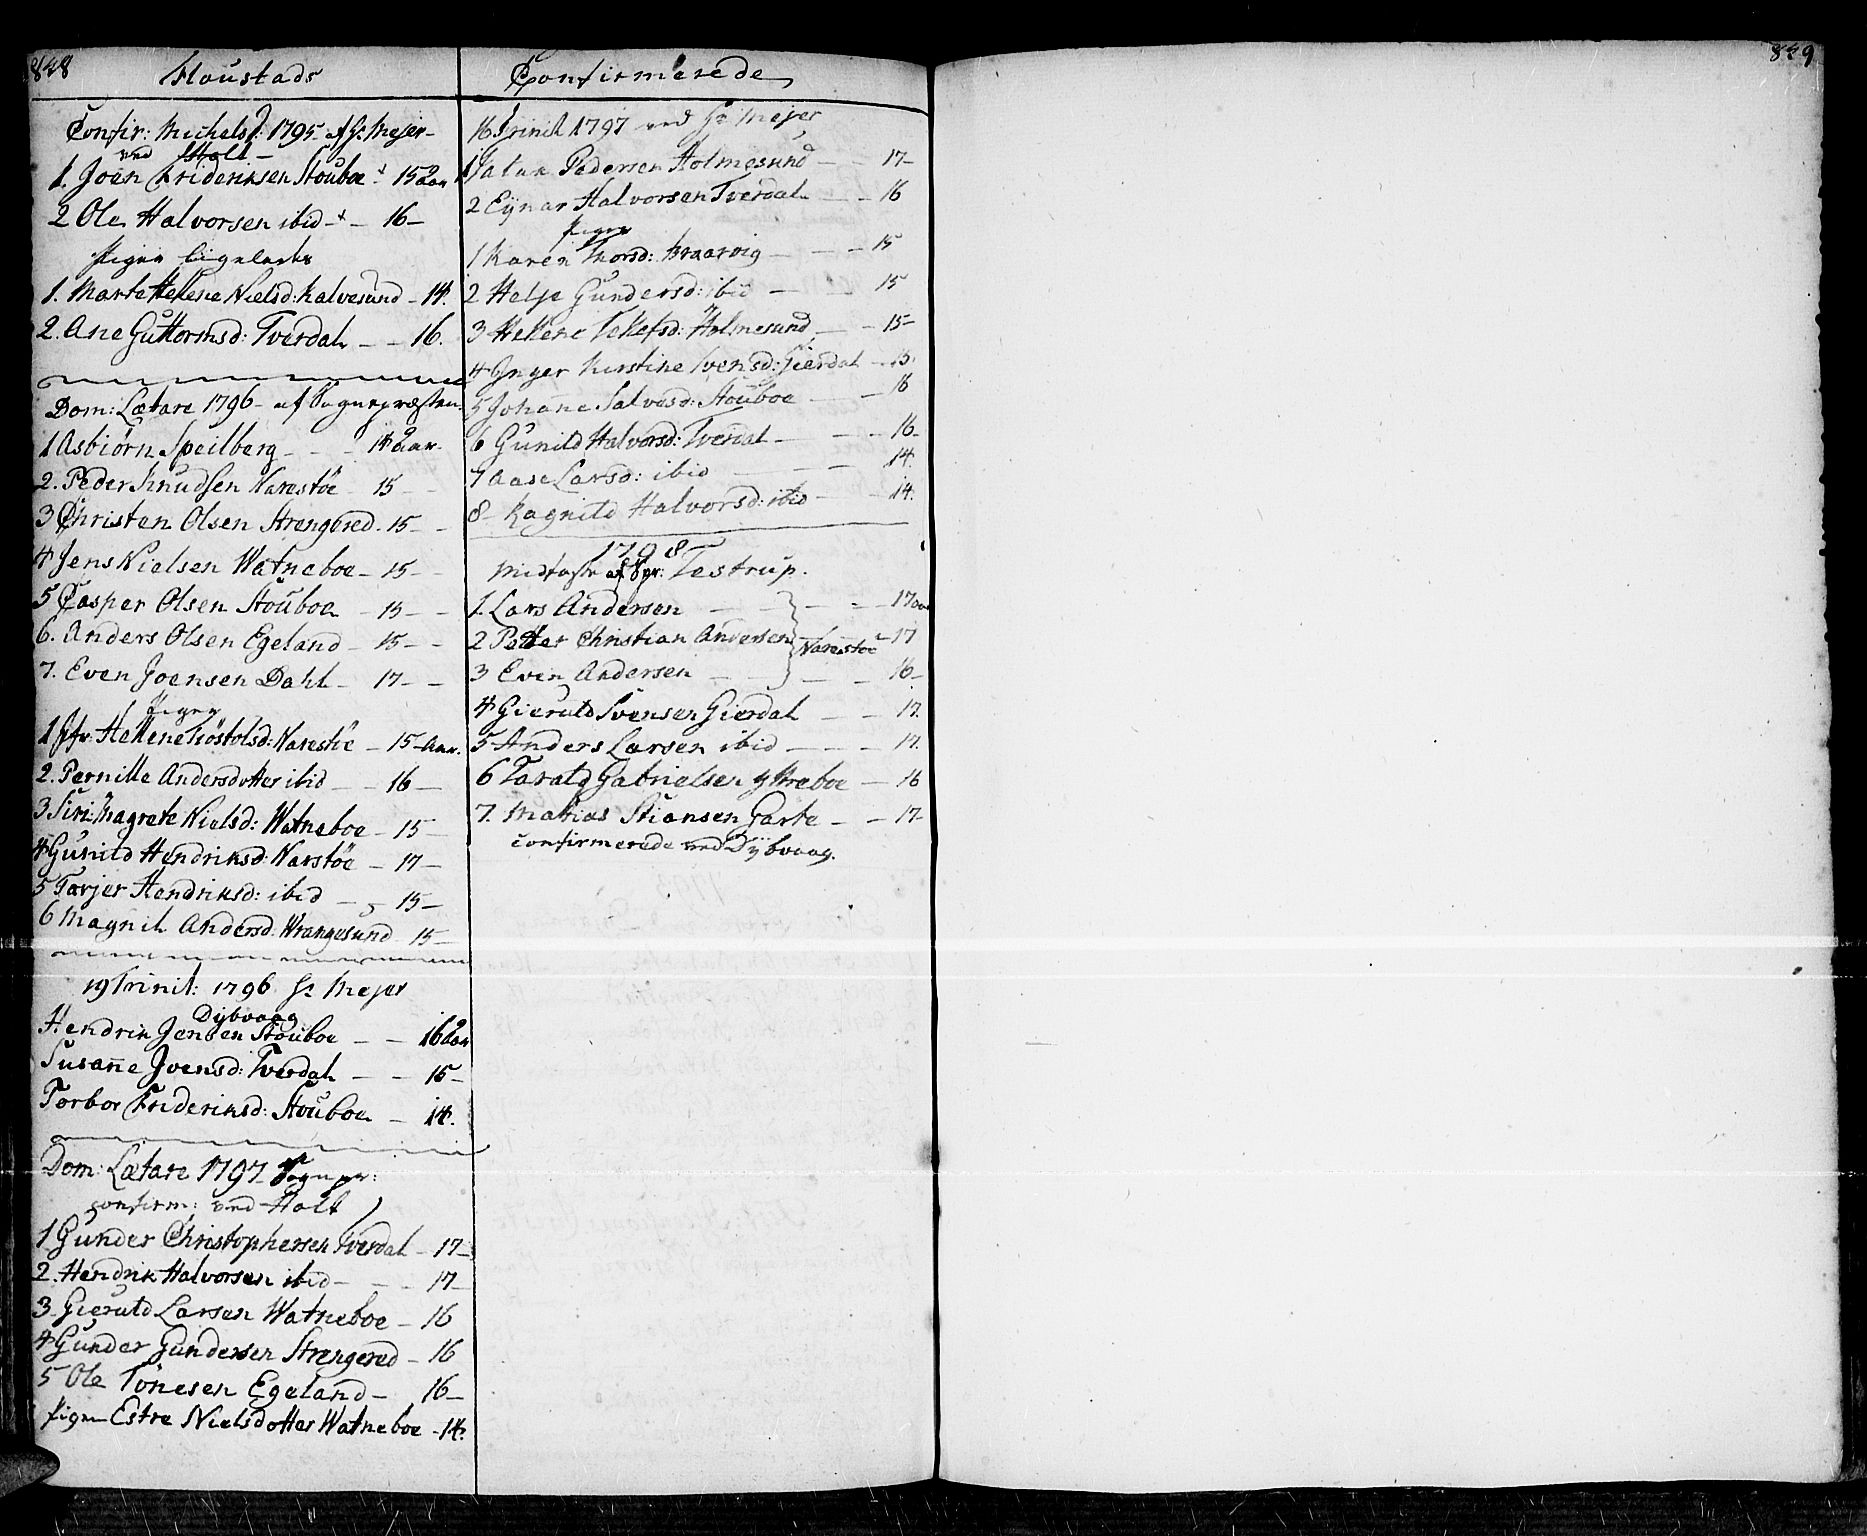 828
Floustads
Confirmerede
Confir: Michelsd: 1795 af Hr Mejer
ved Holt
1. Joen Frideriksen Stouboe 15 Aar
2 Ole Halvorsen ibid 16
Piger
1. Marte Hellene Nielsd: Kalvesund 14.
2. Ane Guttormsd: Tverdal 16.
Dom: Lætare 1796 af Sognepræsten
1 Asbiörn Speilberg 14 Aar.
2. Peder Knudsen Narestöe 15
3 Christen Olsen Strengered 15
4 Jens Nielsen Watneboe 15
5 Casper Olsen Stouboe 15
6. Anders Olsen Egeland 15
7. Even Joensen Dahl 17
Piger
1 Jfr: Hellene Tiöstolsd: Narestöe 15 Aar.
2. Pernille Andersdotter ibid 16
3 Siri Magrete Nielsd: Watneboe 15
4 Gunild Hendriksd: Narstöe 17
5 Tarjer Hendriksd: ibid 15
6 Magnil Andersd: Wrangesund 15
19 Trinit: 1796 Hr Mejer
Dybvaag
Hendrik Jensen Stouboe 16 Aar
Susan̄e Jvensd: Tverdal 15
Torbor Frideriksd: Stouboe 14.
Dom: Lætare 1797 Sognepr:
confirm: ved Holt
1 Gunder Christophersen Tverdal 17
2. Hendrik Halvorsen ibid 17
3. Gieruld Larsen Watneboe 16
4 Gunder Gundersen Strengered 16
5 Ole Tönesen Egeland 16
Pigen Estre Nielsdotter Watneboe 14.
16 Trinit 1797 ved Hr Mejer
1 Pedersen Holmesund 17
2 Eynar Halvorsen Tverdal 16
Piger
1 Karen Thorsd: Braarvig 15
2 Helje Gundersd: ibid 15
3 Hellene Tellefsd: Holmesund 15
4 Jnger Kirstine Svensd: Gierdal 15
5 Johan̄e Salvesd: Stouboe 16
6 Gunild Halvorsd: Tverdal 16
7 Aase Larsd: ibid 14.
8 Ragnild Halvorsd: ibid 14.
1798
Midfaste af Spr: Testrup.
1. Lars Andersen 17 Aar
2 Petter Christian Andersen Narestöe 17
3 Even Andersen 16
4 Gieruld Svensen Gierdal 17.
5 Anders Larsen ibid 17.
6 Tarald Gabrielsen Ytreboe 16
7. Matias Stiansen Garte 17
confirmerede ved Dybvaag.
829